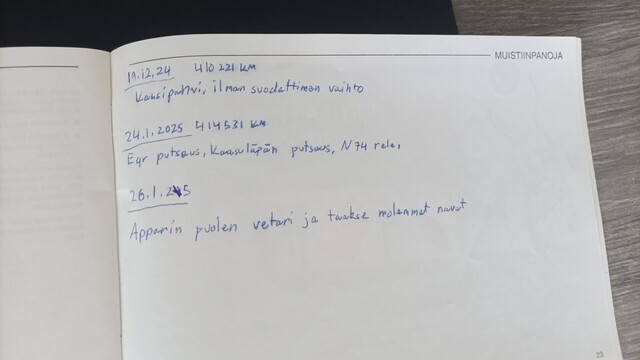 MUISTIINPANOJA
19.12.24 410221 KM
Kansipahvi, ilman suodattiman vaihto
24.1.2025 414531 KM
Egr putsaus, Kaasuläpän putsaus, N74 rele,
26.1.25
Apparin puolen vetari ja taakse molemmat navat
23